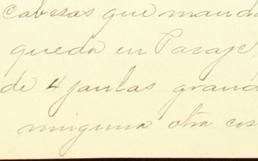 Cabezas que mand
queda en Pasaje
de 4 jaulas grand
ninguna otra cos